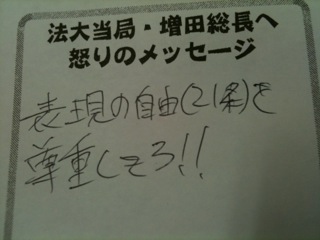 法大当局・増田総長へ
怒りのメッセージ
表現の自由(21条)を
尊重しろ!!